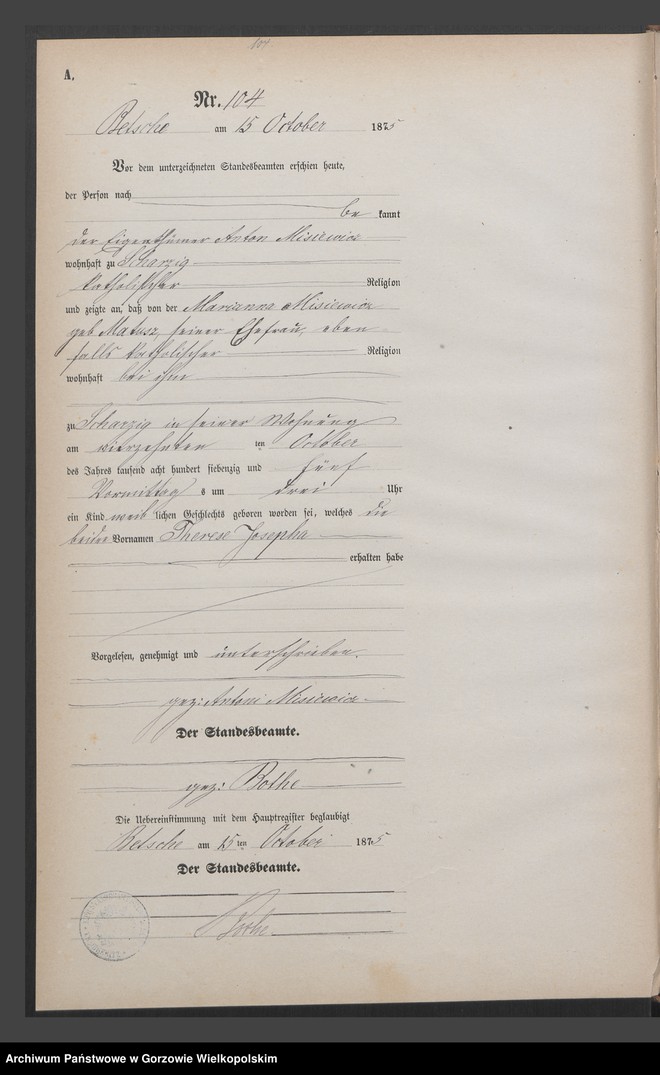 104
A.
Nr. 104
Betsche am 15 October 1875
Vor dem unterzeichneten Standesbeamten erschien heute,
der Person nach
be kannt
der Eigenthümer Anton Misiewicz
wohnhaft zu Scharzig
katholischer Religion
und zeigte an, daß von der Marianna Misiewicz
geb Matusz, seiner Ehefrau, eben
falls katholischer Religion
wohnhaft bei ihm
zu Scharzig in seiner Wohnung
am vierzehnten ten October
des Jahres tausend acht hundert siebenzig und fünf
Vormittag s um drei Uhr
ein Kind weib lichen Geschlechts geboren worden sei, welches die
beiden Vornamen Therese Josepha
erhalten habe
Vorgelesen, genehmigt und unterschrieben.
gez: Antoni Misiewicz
Der Standesbeamte.
gez: Bothe
Die Uebereinstimmung mit dem Hauptregister beglaubigt
Betsche am 15 ten October 1875
Der Standesbeamte.
Bothe
Archiwum Państwowe w Gorzowie Wielkopolskim